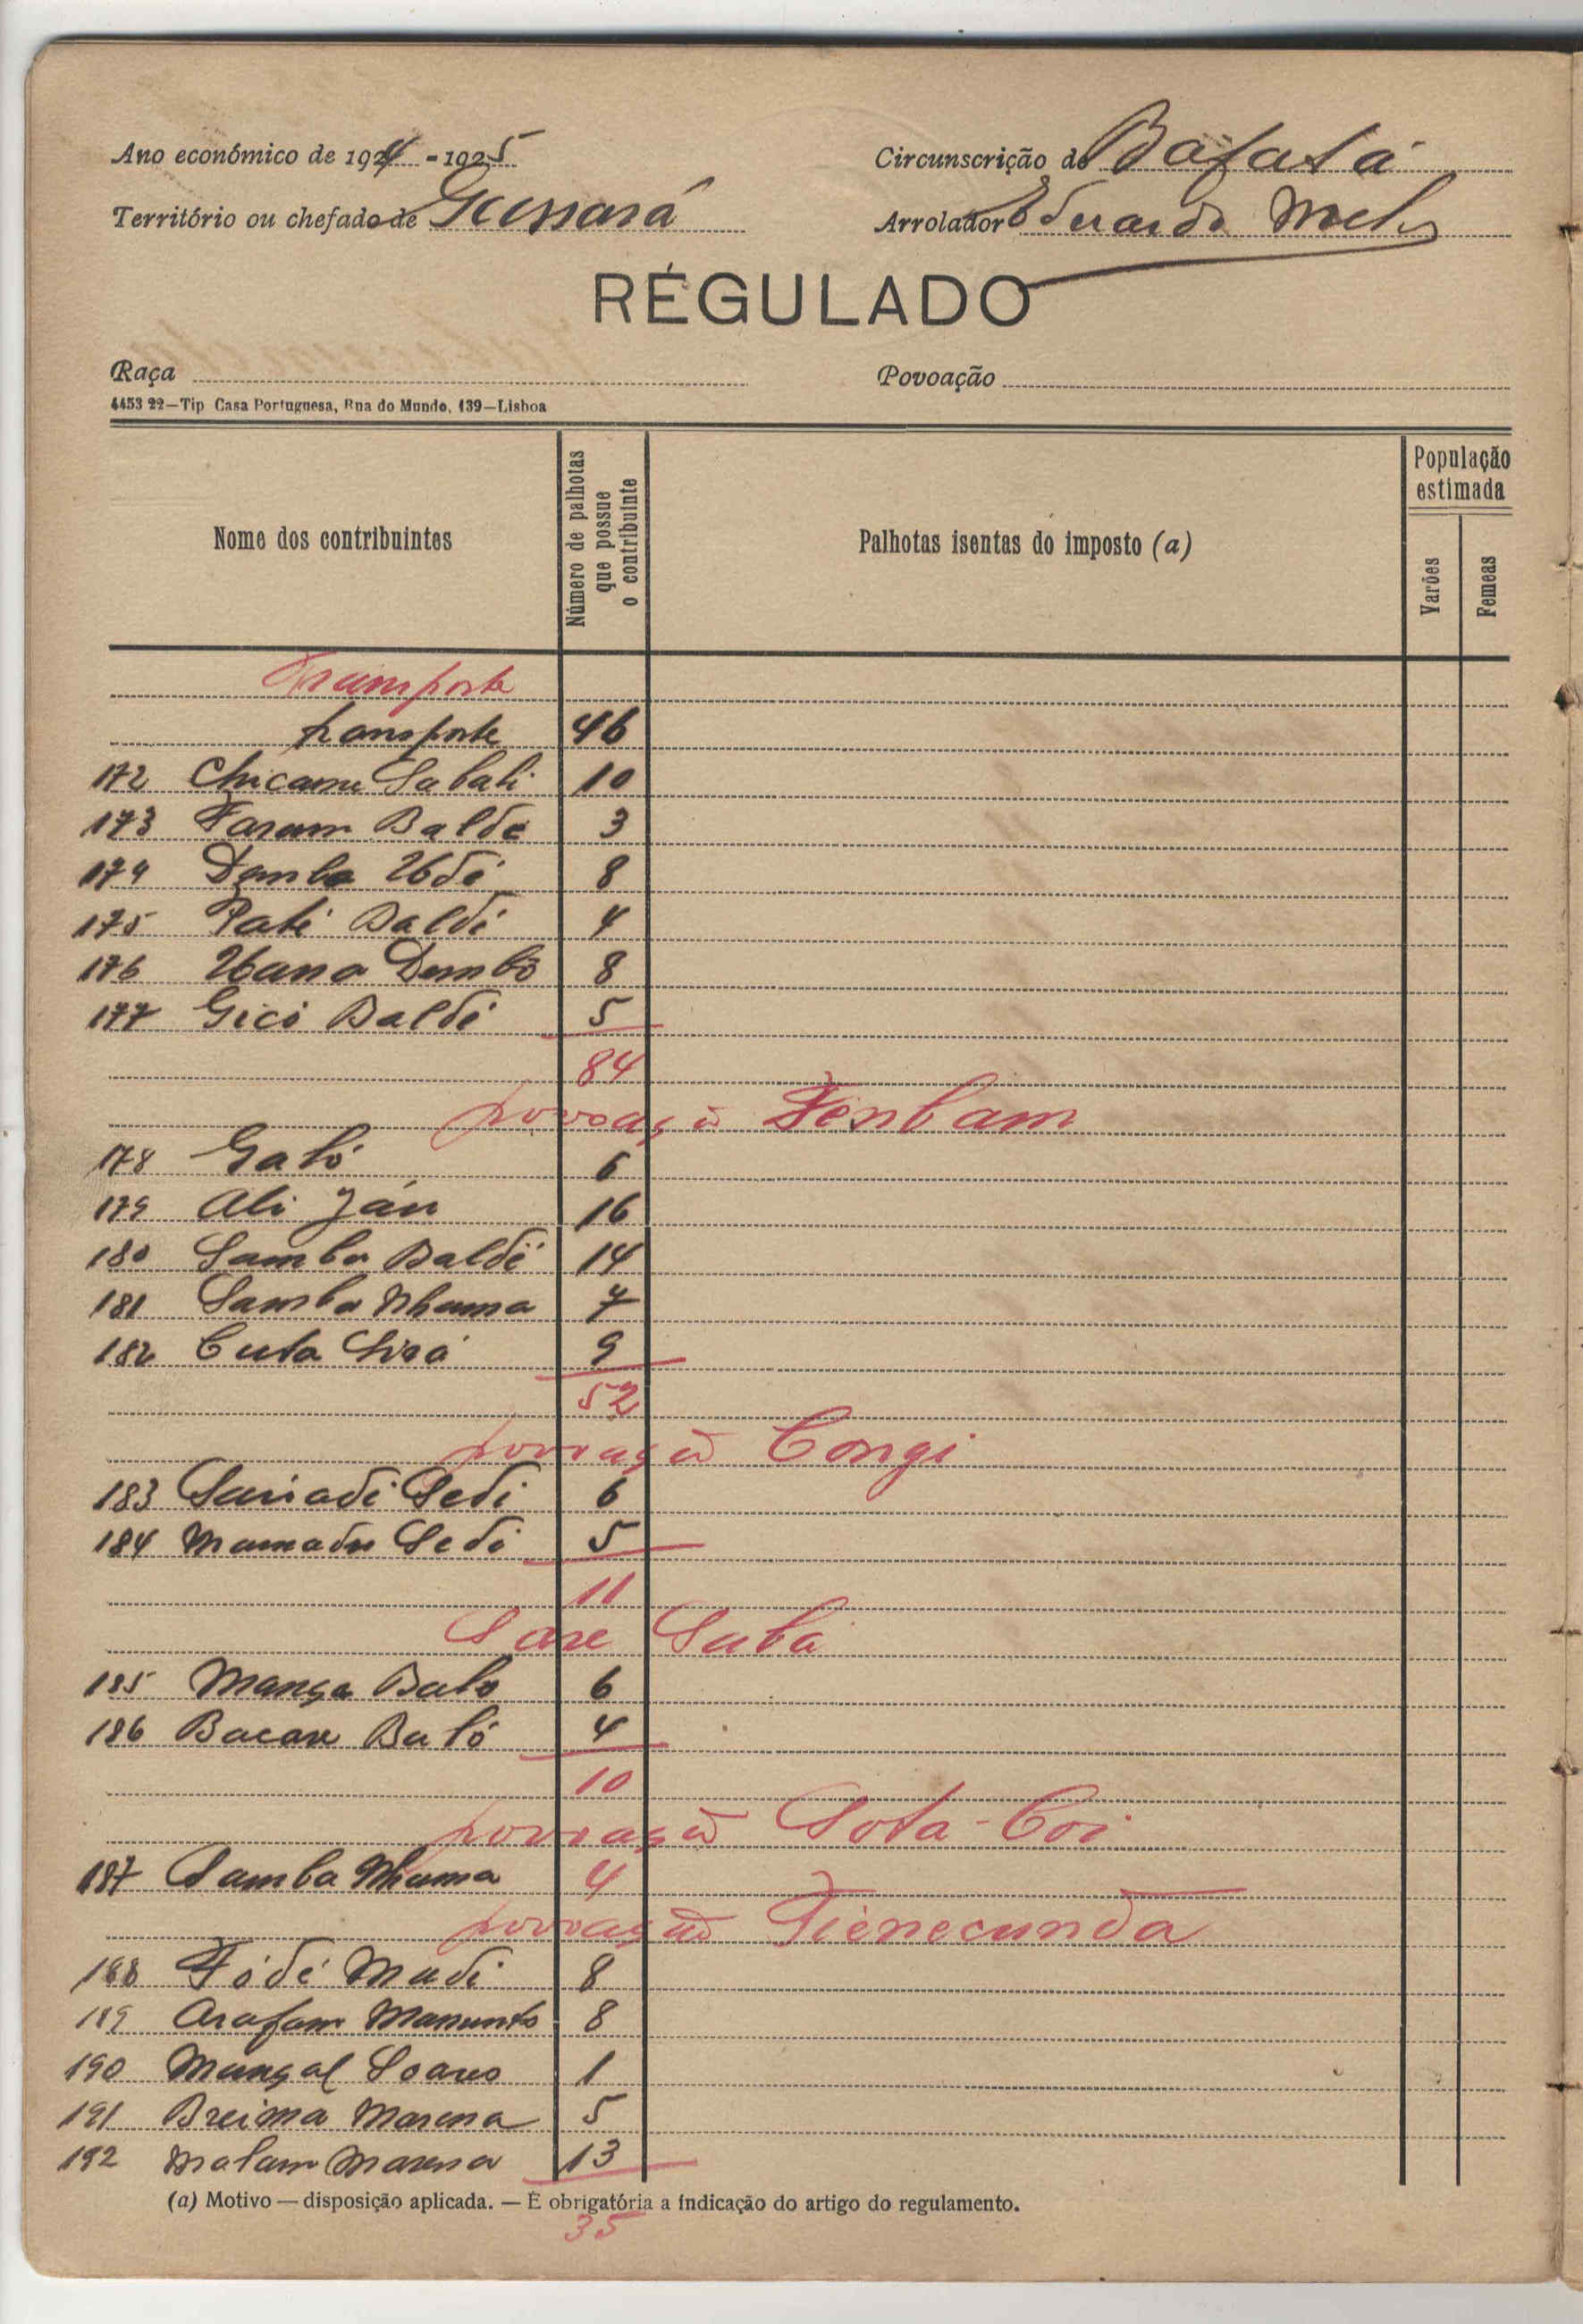 Ano económico de 1924 - 1925
Circunscrição de Bafatá
Território ou chefado de Gussará
Arrolador Eduardo
RÉGULADO
Raça
Povoação
4453 22—Tip Casa Portuguesa, Rua do Mundo, 139—Lisboa
Nome dos contribuintes
Número de palhotas que possue o contribuinte
Palhotas isentas do imposto (a)
População estimada
Varões
Femeas
Transporte
transporte 46
172 Chicame Sabali 10
173 Faram Balde 3
174 Demba Udé 8
175 Paté Baldé 4
176 Uana Dembó 8
177 Gicó Baldé 5
84
povoação Fenbam
178 Galó 6
179 Ali Ján 16
180 Samba Baldé 14
181 Samba Nhama 7
182 Cuta Sirá 9
52
povoação Congi
183 Sariadi Sedi 6
184 Mamadu Sedi 5
11
Sare Suba
185 Manga Balo 6
186 Bacar Baló 4
10
povoação Sota-Coi
187 Samba Nhama 4
povoação Fienecunda
188 Fódé Madi 8
189 Arafam 8
190 Mangal Soares 1
191 Breima Marena 5
192 Malam Marena 13
(a) Motivo — disposição aplicada. — É obrigatória a indicação do artigo do regulamento.
35